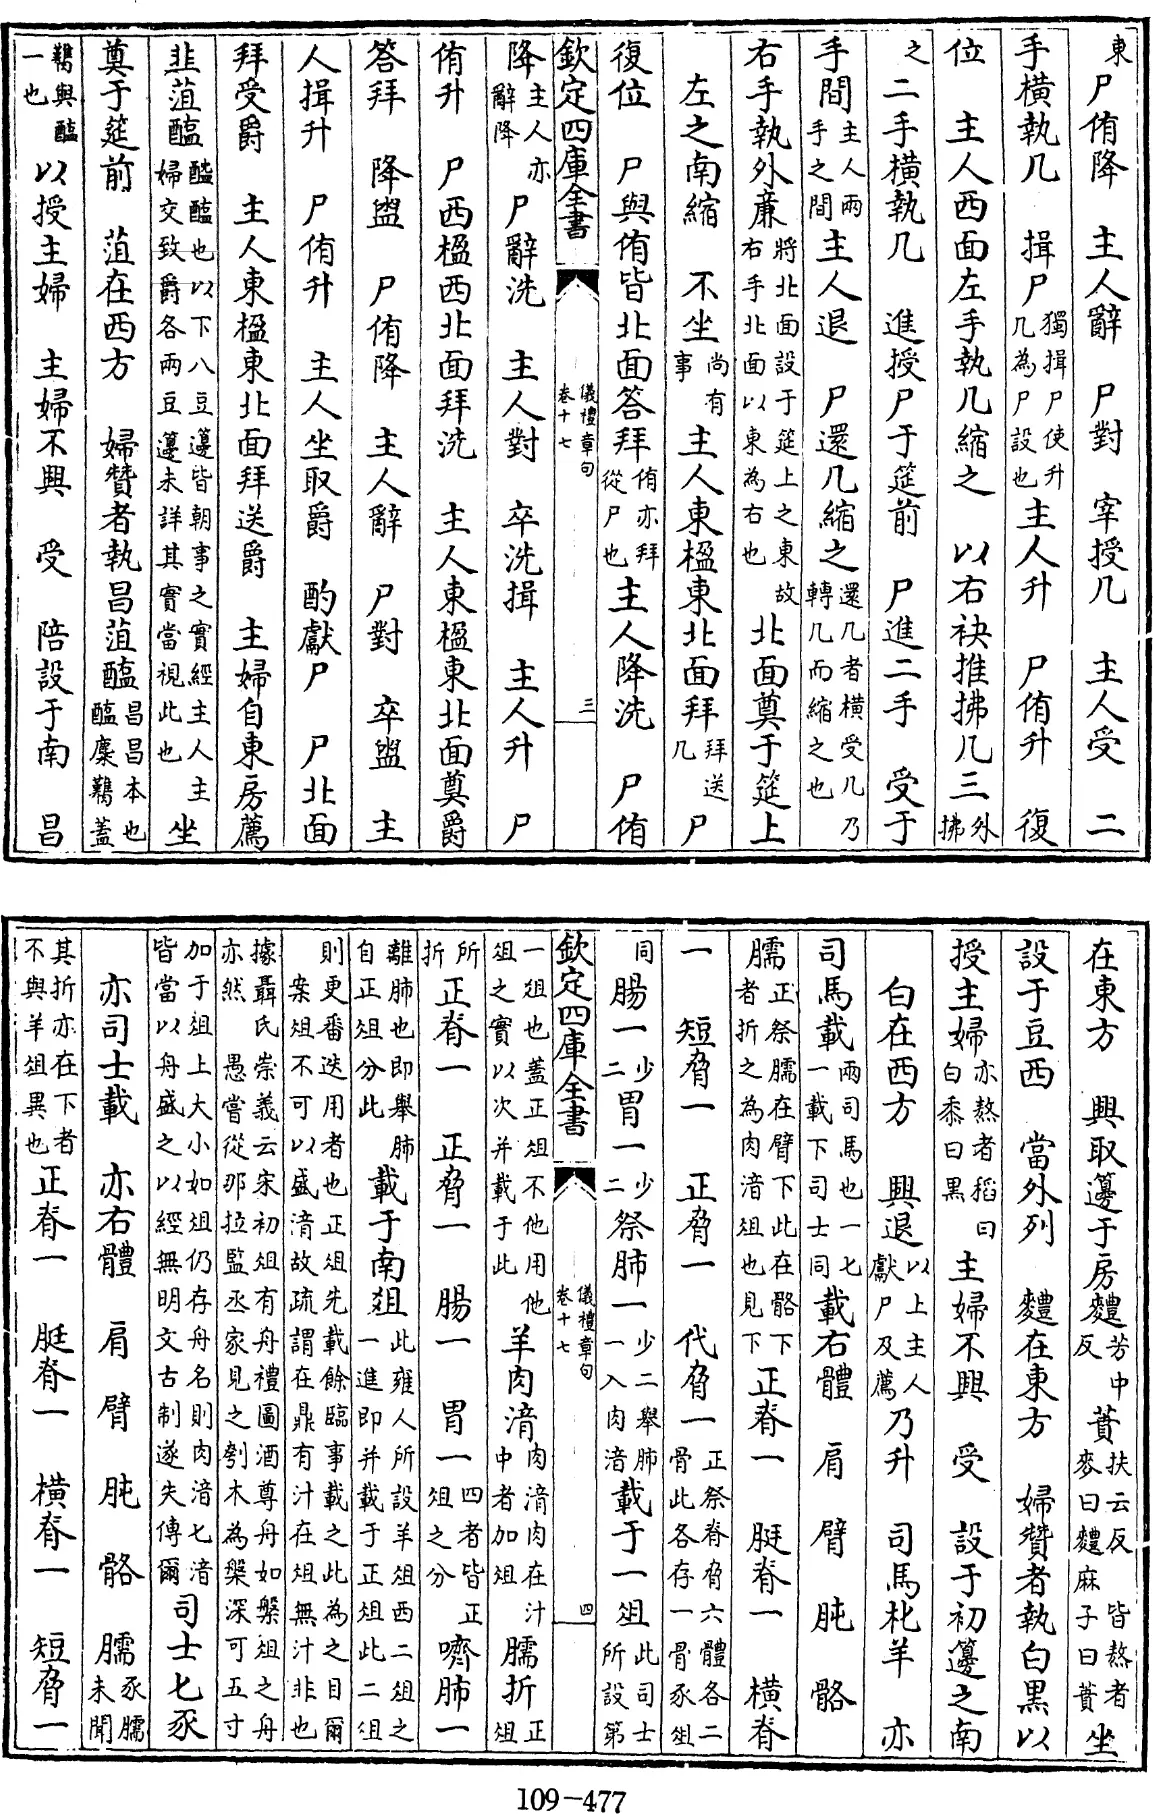 東尸侑降　主人辭　尸對　宰授几　主人受　二
手橫執几　揖尸獨揖尸使升几為尸設也主人升　尸侑升　復
位　主人西面左手執几縮之　以右袂推拂几三外拂
之二手橫執几　進授尸于筵前　尸進二手　受于
手間主人兩手之間主人退　尸還几縮之還几者橫受几乃轉几而縮之也
右手執外廉將北面設于筵上之東故右手北面以東為右也北面奠于筵上
左之南縮　不坐尚有事主人東楹東北面拜拜送几尸
復位　尸與侑皆北面答拜侑亦拜從尸也主人降洗　尸侑
欽定四庫全書　儀禮章句卷十七　三
降主人亦辭降尸辭洗　主人對　卒洗揖　主人升　尸
侑升　尸西楹西北面拜洗　主人東楹東北面奠爵
答拜　降盥　尸侑降　主人辭　尸對　卒盥　主
人揖升　尸侑升　主人坐取爵　酌獻尸　尸北面
拜受爵　主人東楹東北面拜送爵　主婦自東房薦
韭菹醢醓醢也以下八豆籩皆朝事之實經主人主婦交致爵各兩豆籩未詳其實當視此也坐
奠于筵前　菹在西方　婦贊者執昌菹醢昌昌本也醢麋臡蓋
臡與醢一也以授主婦　主婦不興　受　陪設于南　昌
在東方　興取籩于房麷芳中反蕡扶云反皆熬者麥曰麷麻子曰蕡坐
設于豆西　當外列　麷在東方　婦贊者執白黑以
授主婦亦熬者稻曰白黍曰黑主婦不興　受　設于初籩之南
白在西方　興退以上主人獻尸及薦乃升　司馬朼羊　亦
司馬載兩司馬也一匕一載下司士同載右體　肩　臂　肫　骼
臑正祭臑在臂下此在骼下者折之為肉湆俎也見下正脊一　脡脊一　橫脊
一　短脅一　正脅一　代脅一正祭脊脅六體各二骨此各存一骨豕俎
同腸一少二胃一少二祭肺一少二舉肺一入肉湆載于一俎此司士所設第
一俎也蓋正俎不他用他俎之實以次并載于此羊肉湆肉湆肉在汁中者加俎臑折正俎
所折正脊一　正脅一　腸一　胃一四者皆正俎之分嚌肺一
離肺也即舉肺自正俎分此載于南俎此雍人所設羊俎西二俎之一進即并載于正俎此二俎
則更番迭用者也正俎先載餘臨事載之此為之目爾案俎不可以盛湆故疏謂在鼎有汁在俎無汁非也
據聶氏崇義云宋初俎有舟禮圖酒尊舟如槃俎之舟亦然　愚嘗從那拉監丞家見之刳木為槃深可五寸
加于俎上大小如俎仍存舟名則肉湆匕湆皆當以舟盛之以經無明文古制遂失傳爾司士匕豕
亦司士載　亦右體　肩　臂　肫　骼　臑豕臑未聞
其折亦在下者不與羊俎異也正脊一　脡脊一　橫脊一　短脅一
109-477